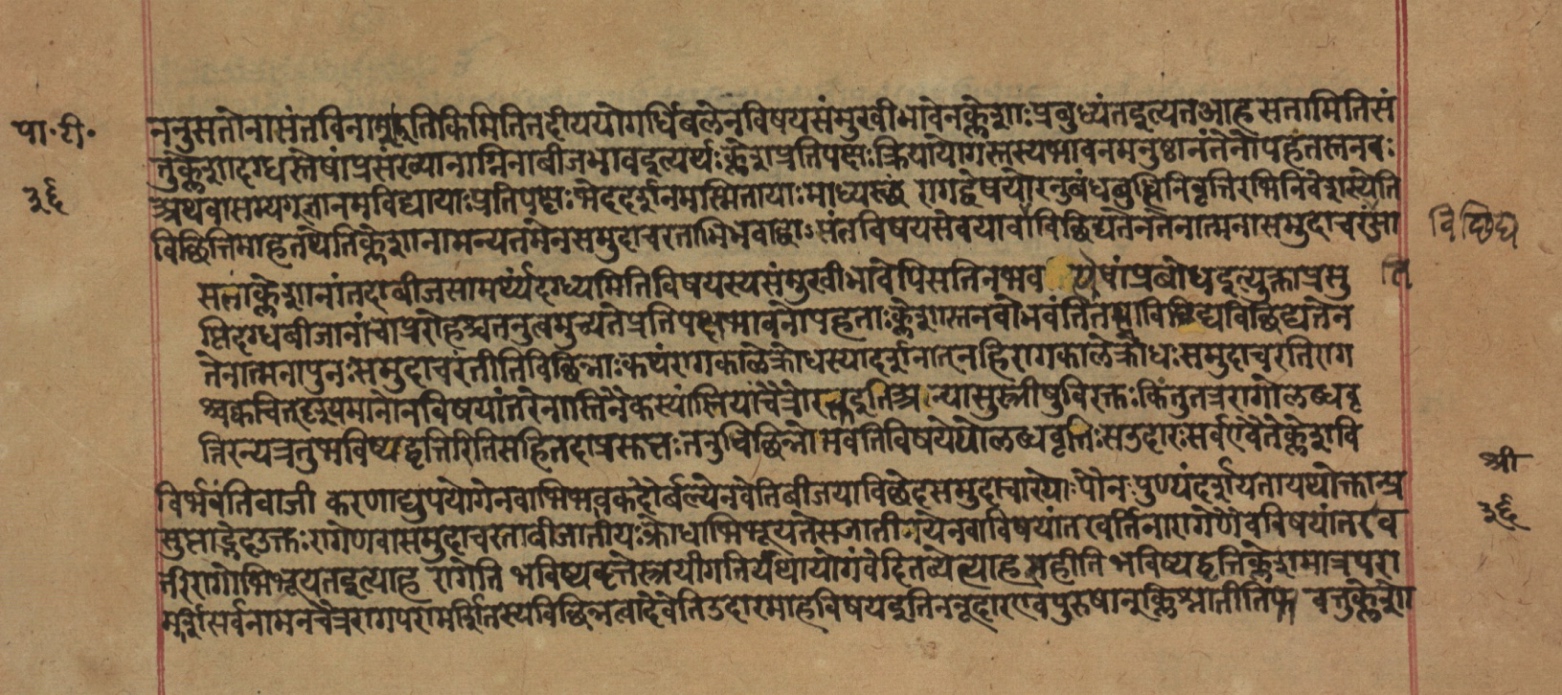 पा॰ टी॰
३६
ननुसतोनासंतविनाशइतिकिमितितदीययोगर्धिबलेनविषयसंमुखीभावेनक्लेशाःप्रबुध्यंतइत्यतआहसतामितिसं
तुक्लेशादग्धस्तेषांप्रसंख्यानाग्निनाबीजभावइत्यर्थःक्लेशप्रतिपक्षःक्रियायोगस्तस्यभावनमनुष्ठानंतेनोपहतास्तनवः
अथवासम्यग्ज्ञानमविद्यायाःप्रतिपक्षःभेददर्शनमस्मितायाःमाध्यस्थ्यं रागद्वेषयोरनुबंधबुद्धिनिवृत्तिरभिनिवेशस्येति
विछित्तिमाहतथेतिक्लेशानामन्यतमेनसमुदाचरताभिभवाद्वाऽसंतविषयसेवयावाविछिद्यतेनतेनात्मनासमुदाचरंसा
विछिद्य
ति
सताक्लेशानांतदाबीजसामर्थ्यंदग्ध्यमितिविषयस्यसंमुखीभावेपिसतिनभव षांप्रबोधइत्युक्ताप्रसु
प्तिदग्धबीजानांचाप्ररोहश्चतनुत्वमुच्यतेप्रतिपक्षभावनोपहताःक्लेशास्तनवोभवंतितथाविछिद्यविछिद्यतेन
तेनात्मनापुनःसमुदाचरंतीतिविछिन्नाःकथंरागकालेक्रोधस्यादर्शनातनहिरागकालेक्रोधःसमुदाचरतिराग
श्चक्वचितदृश्यमानोनविषयांतरेनास्तिनैकस्यांस्त्रियांचैत्रोरक्तइतिअन्यासुस्त्रीषुविरक्तःकिंतुतत्ररागोलब्धवृ
त्तिरन्यत्रतुभविष्यद्वृत्तिरितिसहितदाप्रसुप्ततनुविछिन्नोभवतिविषयेयोलब्धवृत्तिःसउदारःसर्वएवैतेक्लेशवि
विर्भवंतिवाजी करणाद्युपयोगेनवाभिभवकदौर्बल्येनवेतिबीजयाविछेदसमुदाचारयोःपौनःपुण्यंदर्शयतायथोक्तात्प्र
सुप्ताद्भेदउक्तःरागेणवासमुदाचरताविजातीयःक्रोधाभिभूयतेसजातीययेनवाविषयांतरवर्तिनारागेणैवविषयांतरव
र्तीरागोभिभूयतइत्याह रागेति भविष्यवृत्तेस्त्रयीगतिर्यथायोगंवेदितव्येत्याहसहीति भविष्यद्वृत्तिक्लेशमात्रपरा
मर्शिसर्वनामनचैत्ररागपरामर्शितस्यविछिन्नत्वादेवेतिउदारमाहविषयइतिननूदारएवपुरुषानक्लिश्नातीति वतुक्लेशा
श्री
३६